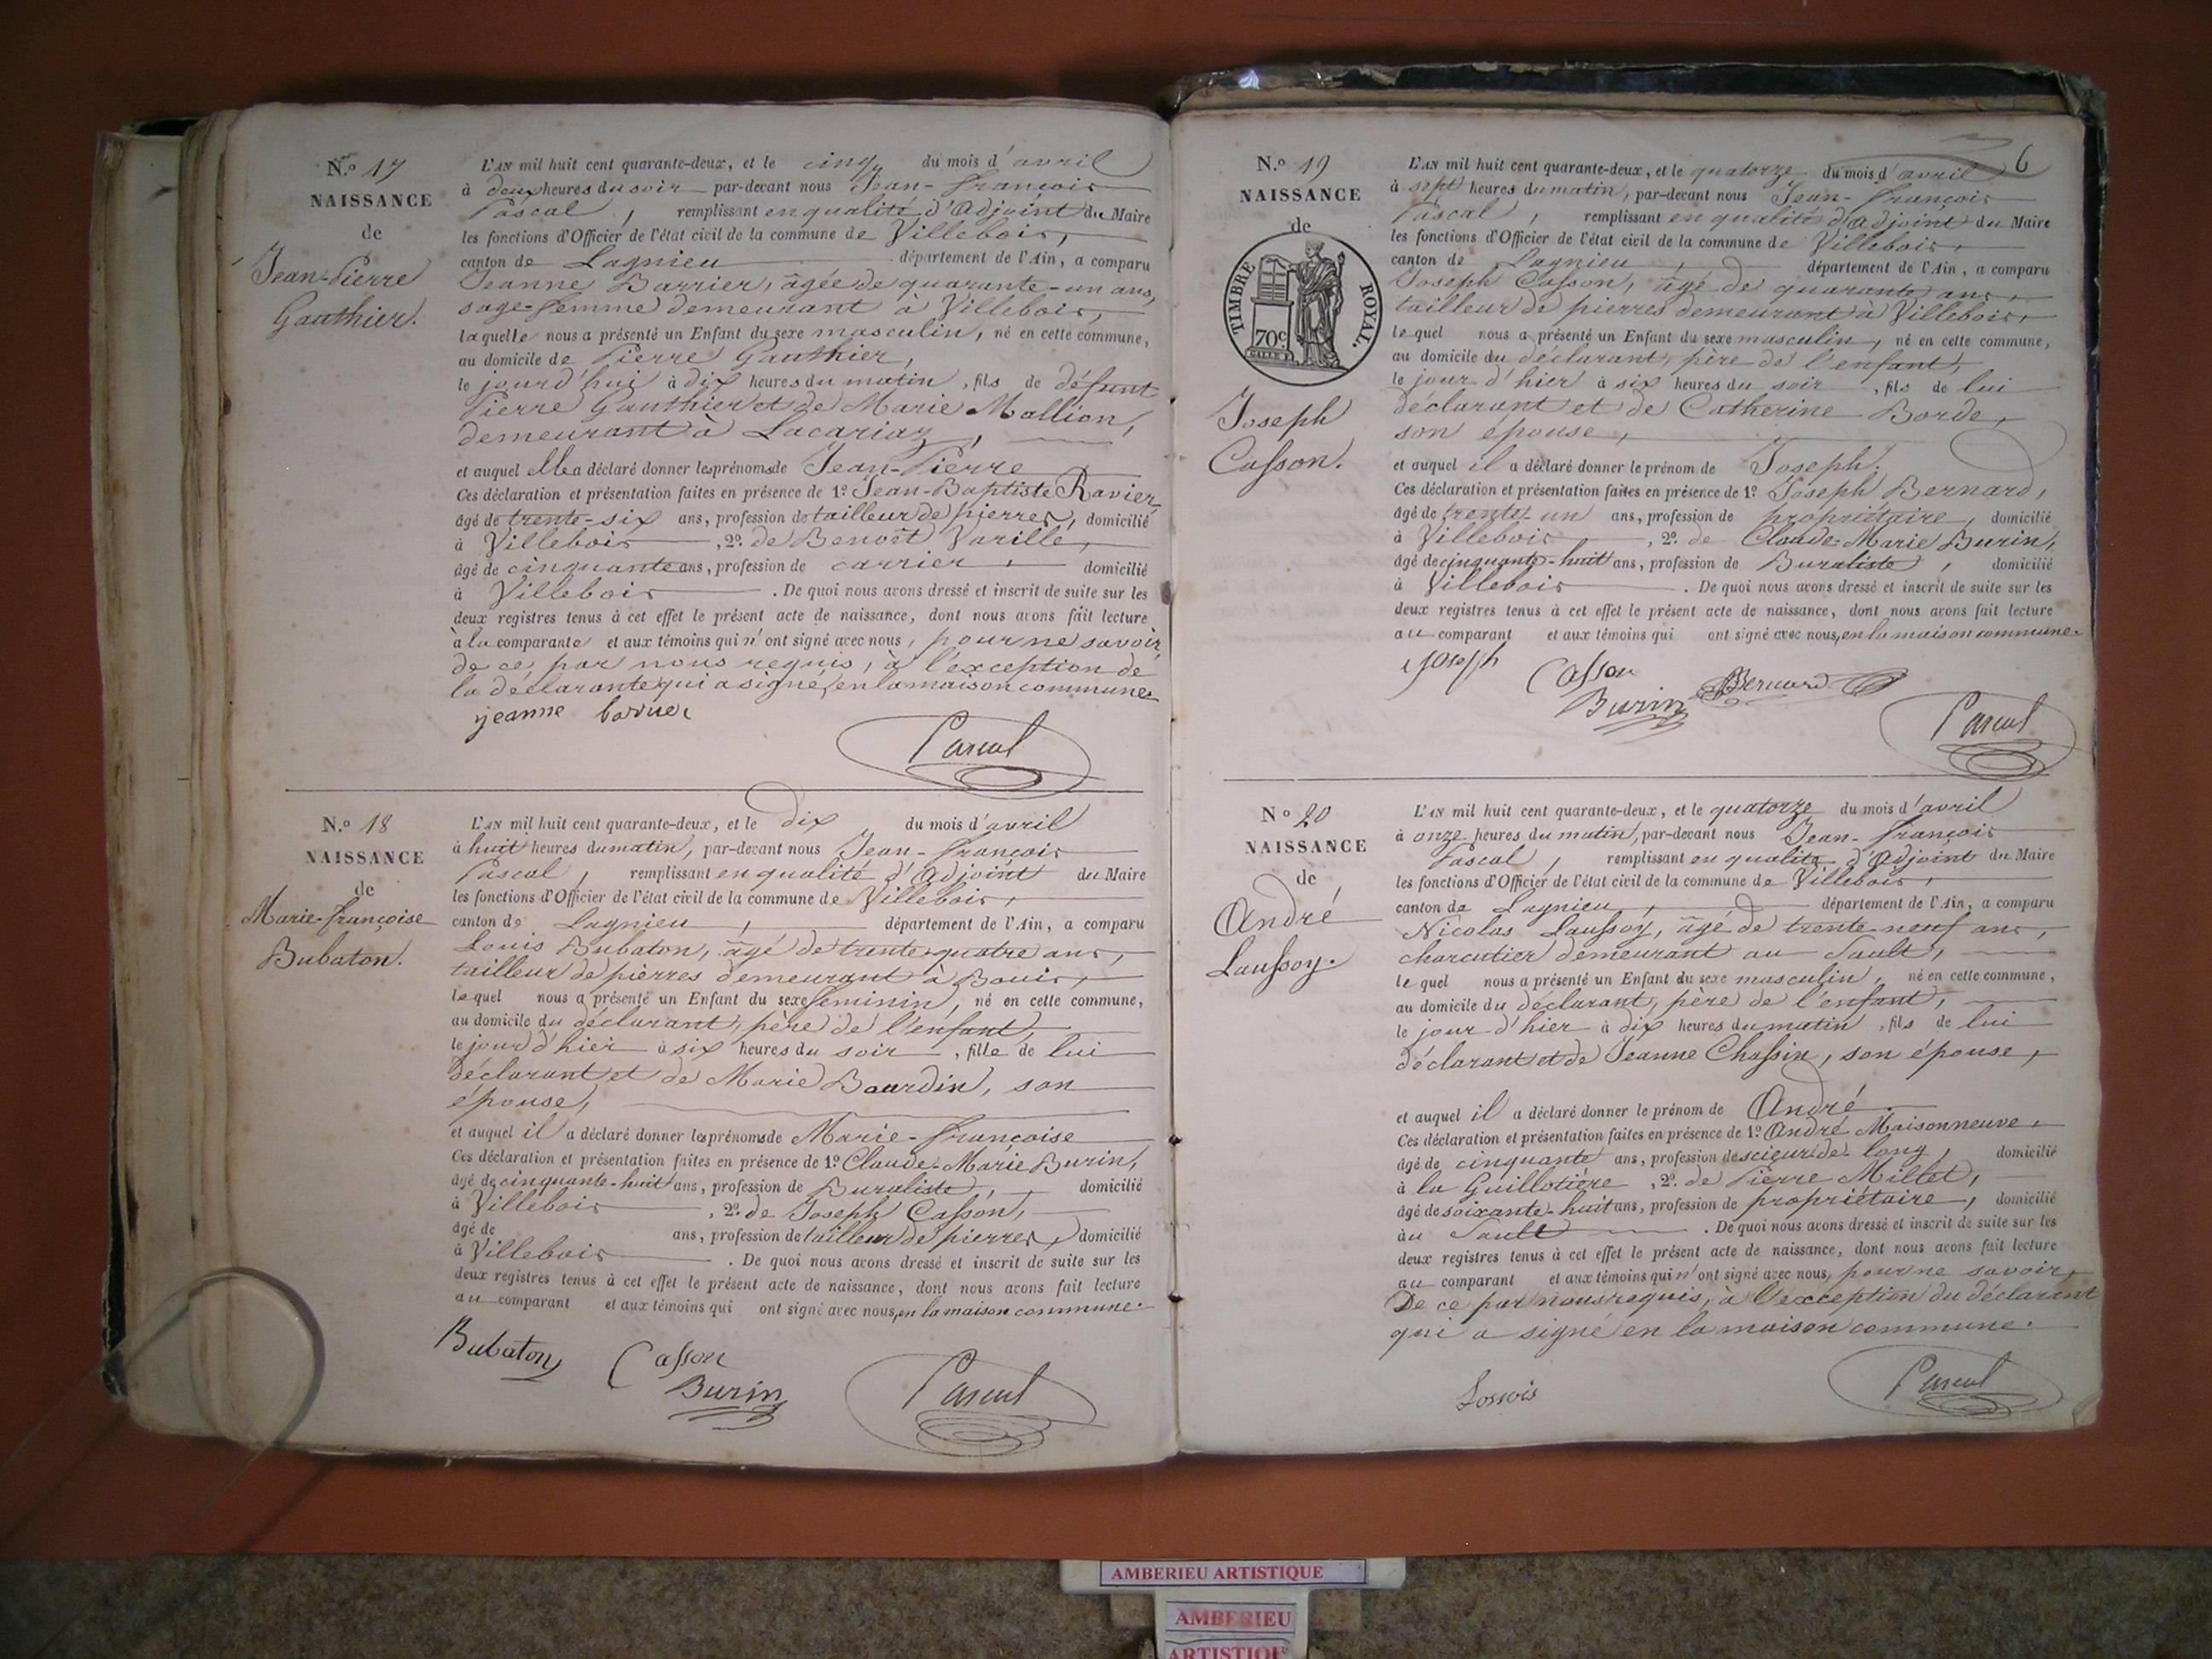 N.º 17
NAISSANCE
de
Jean-Pierre
Gauthier.
L'AN mil huit cent quarante-deux, et le cinq du mois d'avril
à deux heures du soir par-devant nous Jean-François
Pascal, remplissant en qualité d'Adjoint du Maire
les fonctions d'Officier de l'état civil de la commune de Villebois,
canton de Lagnieu département de l'Ain, a comparu
Jeanne Barrier, âgée de quarante-un ans,
sage-femme demeurant à Villebois,
laquelle nous a présenté un Enfant du sexe masculin, né en cette commune,
au domicile de Pierre Gauthier,
le jourd'hui à dix heures du matin, fils de défunt
Pierre Gauthier et de Marie Mallion,
demeurant à Lacariaz,
et auquel elle a déclaré donner les prénoms de Jean-Pierre
Ces déclaration et présentation faites en présence de 1º Jean-Baptiste Ravier,
âgé de trente-six ans, profession de tailleur de pierres, domicilié
à Villebois, 2º de Benoît Varille,
âgé de cinquante ans, profession de carrier, domicilié
à Villebois. De quoi nous avons dressé et inscrit de suite sur les
deux registres tenus à cet effet le présent acte de naissance, dont nous avons fait lecture
à la comparante et aux témoins qui n'ont signé avec nous, pour ne savoir,
de ce par nous requis, à l'exception de
la déclarante qui a signé, en la maison commune.
jeanne barrier
Pascal
N.º 18
NAISSANCE
de
Marie-françoise
Bubaton.
L'AN mil huit cent quarante-deux, et le dix du mois d'avril
à huit heures du matin, par-devant nous Jean-François
Pascal, remplissant en qualité d'Adjoint du Maire
les fonctions d'Officier de l'état civil de la commune de Villebois,
canton de Lagnieu, département de l'Ain, a comparu
Louis Bubaton, âgé de trente-quatre ans,
tailleur de pierres demeurant à Bouis,
lequel nous a présenté un Enfant du sexe féminin, né en cette commune,
au domicile du déclarant, père de l'enfant,
le jour d'hier à six heures du soir, fille de lui
déclarant et de Marie Bourdin, son
épouse,
et auquel il a déclaré donner les prénoms de Marie-françoise
Ces déclaration et présentation faites en présence de 1º Claude-Marie Burin,
âgé de cinquante-huit ans, profession de Buraliste, domicilié
à Villebois, 2º de Joseph Casson,
âgé de ans, profession de tailleur de pierres, domicilié
à Villebois. De quoi nous avons dressé et inscrit de suite sur les
deux registres tenus à cet effet le présent acte de naissance, dont nous avons fait lecture
au comparant et aux témoins qui ont signé avec nous, en la maison commune.
Bubaton Casson
Burin Pascal
6
N.º 19
NAISSANCE
de
TIMBRE ROYAL.
70c
Joseph
Casson.
L'AN mil huit cent quarante-deux, et le quatorze du mois d'avril
à sept heures du matin, par-devant nous Jean-François
Pascal, remplissant en qualité d'Adjoint du Maire
les fonctions d'Officier de l'état civil de la commune de Villebois,
canton de Lagnieu, département de l'Ain, a comparu
Joseph Casson, âgé de quarante ans,
tailleur de pierres demeurant à Villebois,
lequel nous a présenté un Enfant du sexe masculin, né en cette commune,
au domicile du déclarant, père de l'enfant,
le jour d'hier à six heures du soir, fils de lui
déclarant et de Catherine Borde,
son épouse,
et auquel il a déclaré donner le prénom de Joseph.
Ces déclaration et présentation faites en présence de 1º Joseph Bernard,
âgé de trente-un ans, profession de propriétaire, domicilié
à Villebois, 2º de Claude-Marie Burin,
âgé de cinquante-huit ans, profession de Buraliste, domicilié
à Villebois. De quoi nous avons dressé et inscrit de suite sur les
deux registres tenus à cet effet le présent acte de naissance, dont nous avons fait lecture
au comparant et aux témoins qui ont signé avec nous, en la maison commune.
Joseph Casson Bernard
Burin Pascal
Nº 20
NAISSANCE
de
André
Laussoy.
L'AN mil huit cent quarante-deux, et le quatorze du mois d'avril
à onze heures du matin, par-devant nous Jean-François
Pascal, remplissant en qualité d'Adjoint du Maire
les fonctions d'Officier de l'état civil de la commune de Villebois,
canton de Lagnieu, département de l'Ain, a comparu
Nicolas Laussoy, âgé de trente-neuf ans,
charcutier demeurant au Sault,
lequel nous a présenté un Enfant du sexe masculin, né en cette commune,
au domicile du déclarant, père de l'enfant,
le jour d'hier à dix heures du matin, fils de lui
déclarant et de Jeanne Chassin, son épouse,
et auquel il a déclaré donner le prénom de André.
Ces déclaration et présentation faites en présence de 1º André Maisonneuve,
âgé de cinquante ans, profession de scieur de long, domicilié
à la Guillotière, 2º de Pierre Millet,
âgé de soixante-huit ans, profession de propriétaire, domicilié
au Sault. De quoi nous avons dressé et inscrit de suite sur les
deux registres tenus à cet effet le présent acte de naissance, dont nous avons fait lecture
au comparant et aux témoins qui n'ont signé avec nous, pour ne savoir,
De ce par nous requis, à l'exception du déclarant
qui a signé en la maison commune.
Lossois
Pascal
AMBERIEU ARTISTIQUE
AMBERIEU
ARTISTIQUE